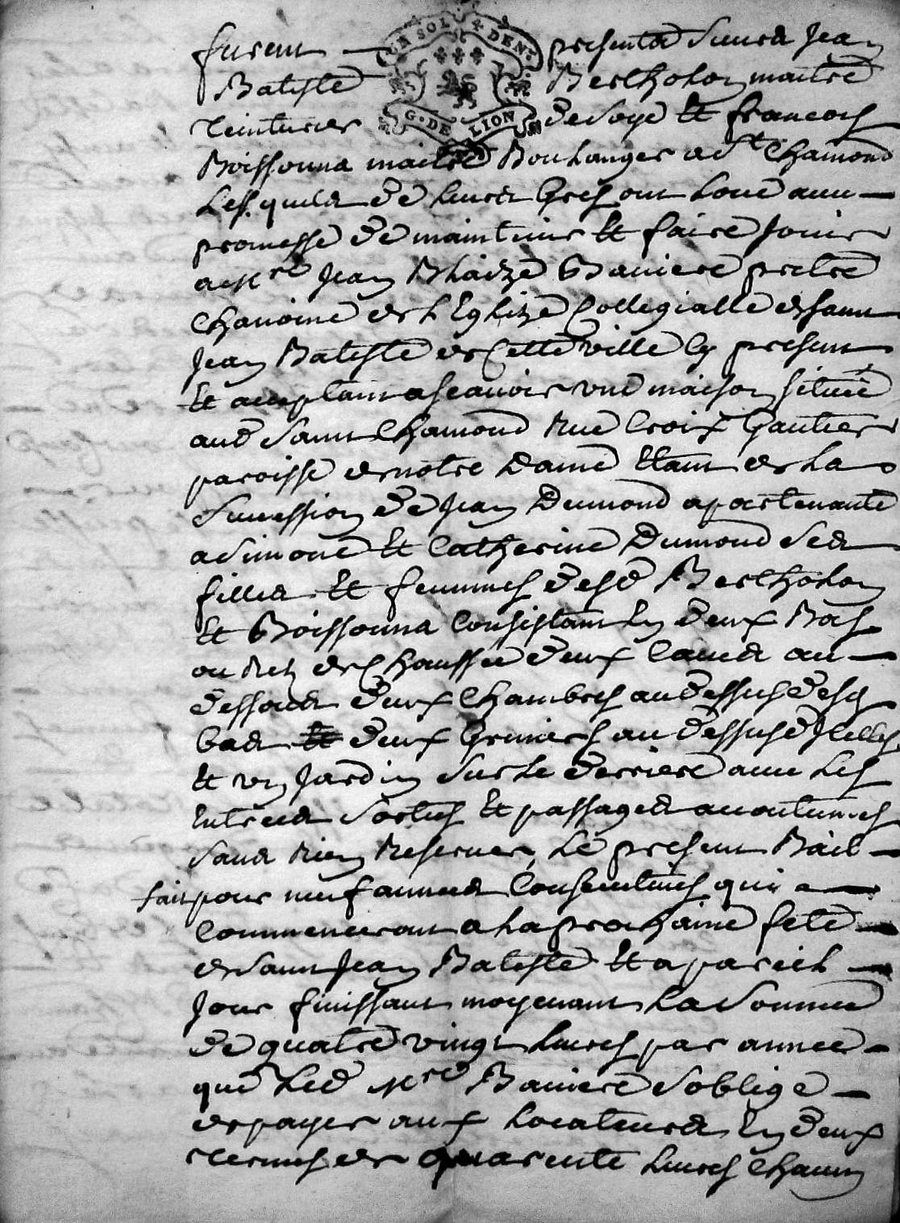 furent presents sieurs Jean
UN SOL 4 DEN.
G. DE LION
Batiste Bertholon maitre
teinturier de soye et francois
Boissonna maitre Boulanger a St Chamond
Lesquels de leurs gres ont loué avec
promesse de maintenir et faire jouir
a Mre Jean Blaize Baniere pretre
chanoine de l'Eglize Collegialle de saint
Jean Batiste de cette ville Cy present
et acceptant a scavoir une maison situee
aud saint Chamond Rue Croix Gautier
paroisse de notre Dame etant de la
succession de Jean Dumond apartenante
a simone et Catherine Dumond ses
filles et femmes desd Bertholon
et Boissonna Consistant en deux Bas
ou Rez de Chaussée deux Caves au
dessous deux Chambres au dessus desd
bas et deux Greniers au dessus d'Icelles
et un Jardin sur le derriere avec les
entrees sorties et passages accoutumes
sans Rien Reserver, Le present Bail
fait pour neuf annees Consecutives qui
Commenceront a la prochaine fete
de saint Jean Batiste et a pareil
Jour finissant moyenant La somme
de quatre vingt Livres par annee
que Led Mre Baniere s'oblige
de payer aux Locateurs En deux
termes de quarente Livres Chacun